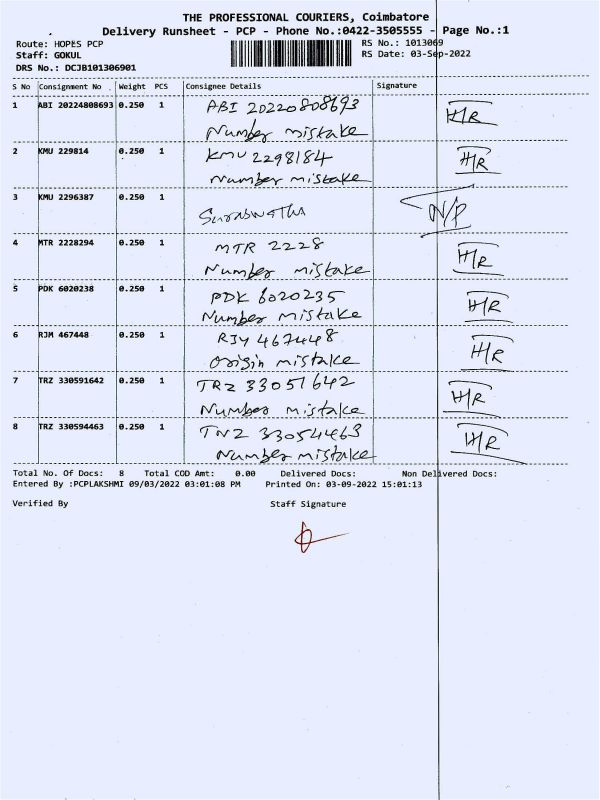 THE PROFESSIONAL COURIERS, Coimbatore
Delivery Runsheet - PCP - Phone No.:0422-3505555 - Page No.:1
Route: HOPES PCP RS No.: 1013069
Staff: GOKUL RS Date: 03-Sep-2022
DRS No.: DCJB101306901
S No Consignment No Weight PCS Consignee Details Signature
1 ABI 20224808693 0.250 1 ABI 20220808693 H/R
Number mistake
2 KMU 229814 0.250 1 KMU 2298184 H/R
Number mistake
3 KMU 2296387 0.250 1 N/P
4 MTR 2228294 0.250 1 MTR 2228 H/R
Number mistake
5 PDK 6020238 0.250 1 PDK 6020235 H/R
Number mistake
6 RJM 467448 0.250 1 RJY 467448 H/R
Origin mistake
7 TRZ 330591642 0.250 1 TRZ 33051642 H/R
Number mistake
8 TRZ 330594463 0.250 1 TNZ 33054463 H/R
Number mistake
Total No. Of Docs: 8 Total COD Amt: 0.00 Delivered Docs: Non Delivered Docs:
Entered By :PCPLAKSHMI 09/03/2022 03:01:08 PM Printed On: 03-09-2022 15:01:13
Verified By Staff Signature